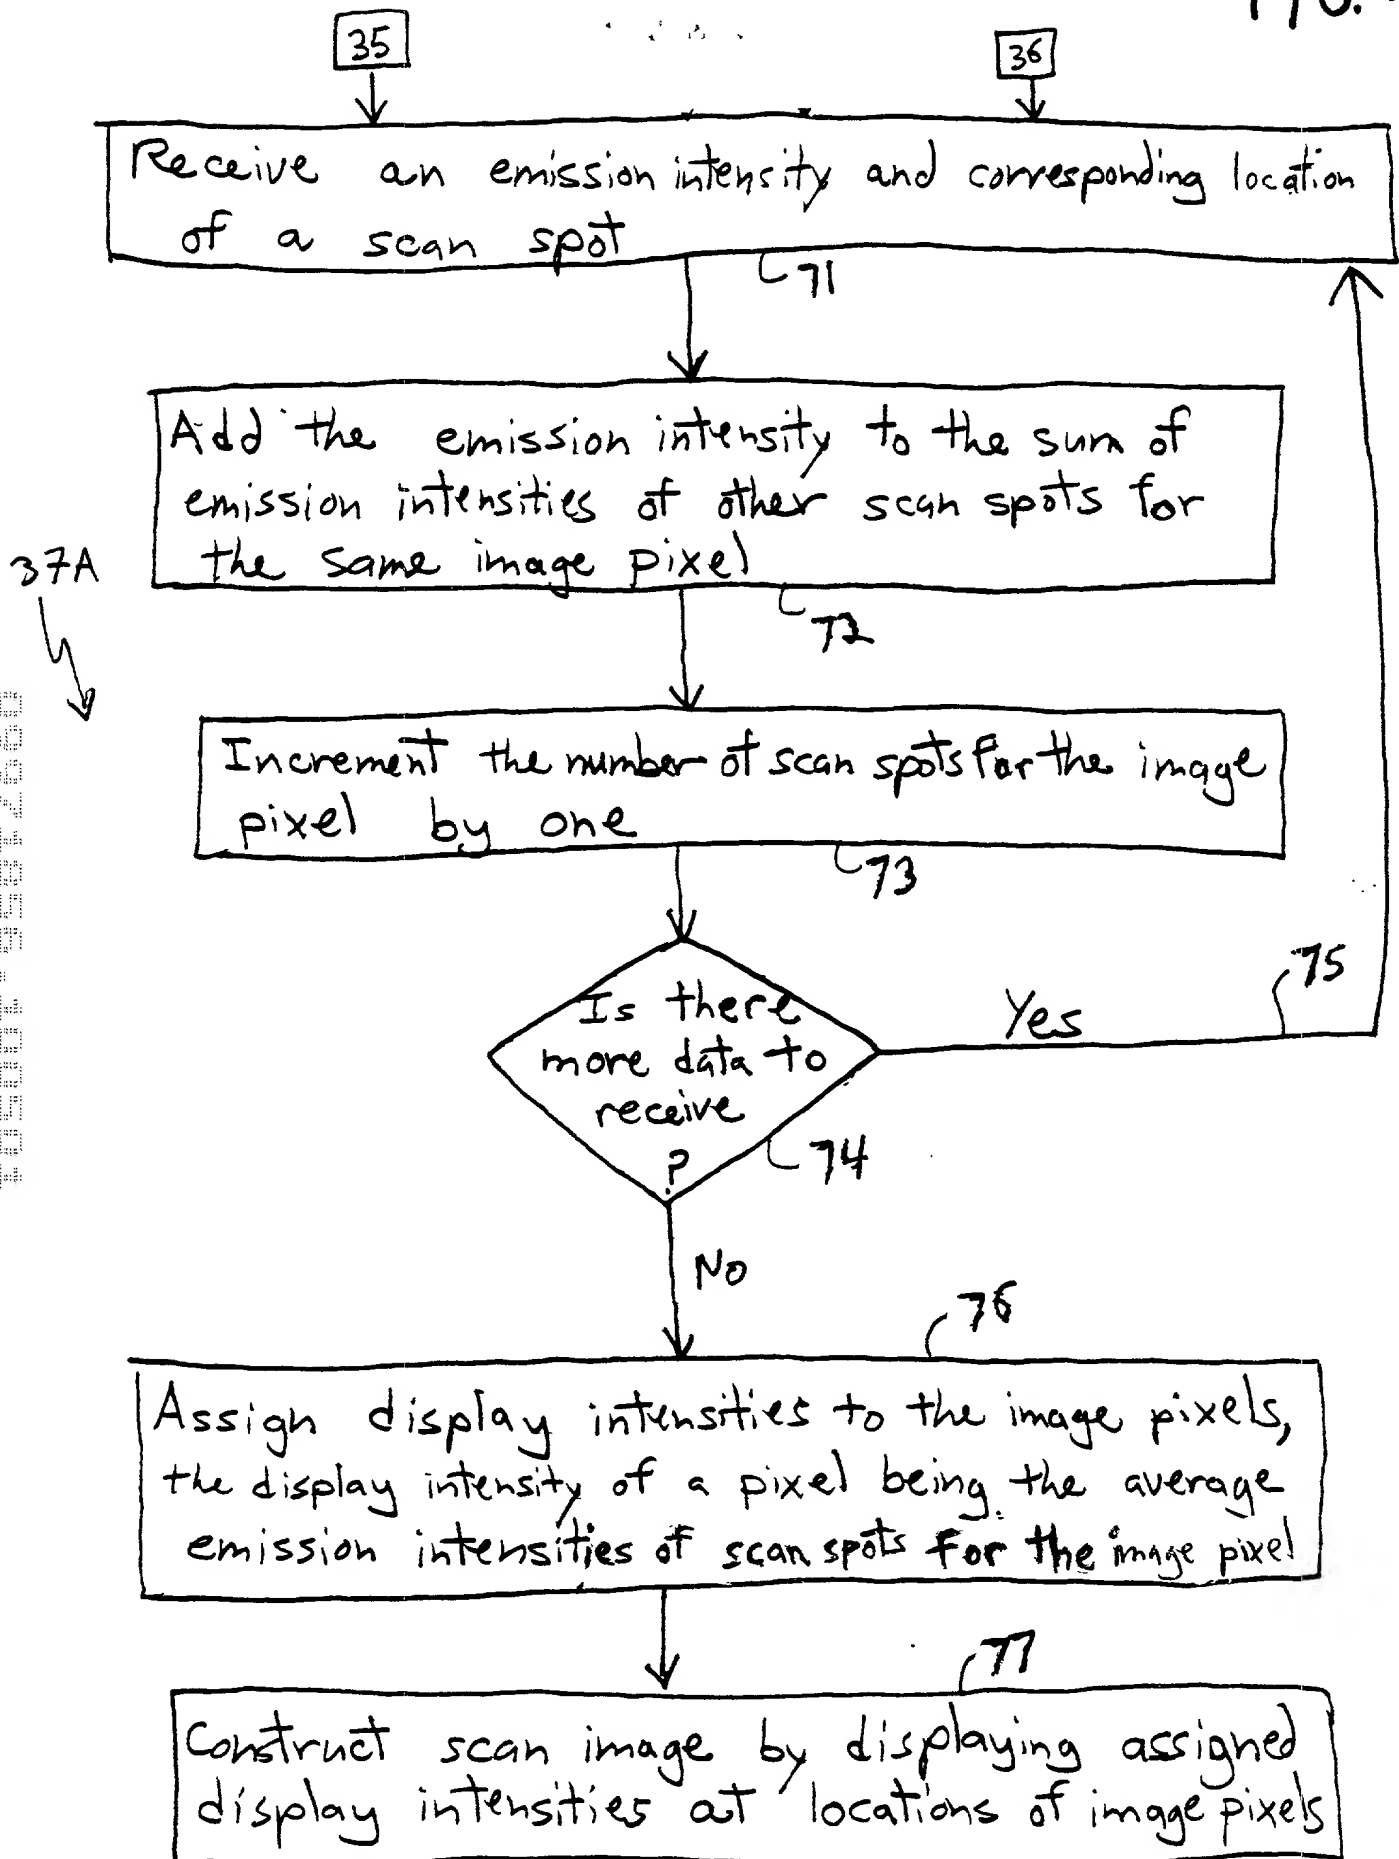 FIG.
35
36
Receive an emission intensity and corresponding location
of a scan spot
71
Add the emission intensity to the sum of
emission intensities of other scan spots for
the same image pixel
72
37A
Increment the number of scan spots for the image
pixel by one
73
Is there
more data to
receive
?
74
Yes
75
No
76
Assign display intensities to the image pixels,
the display intensity of a pixel being the average
emission intensities of scan spots for the image pixel
77
Construct scan image by displaying assigned
display intensities at locations of image pixels